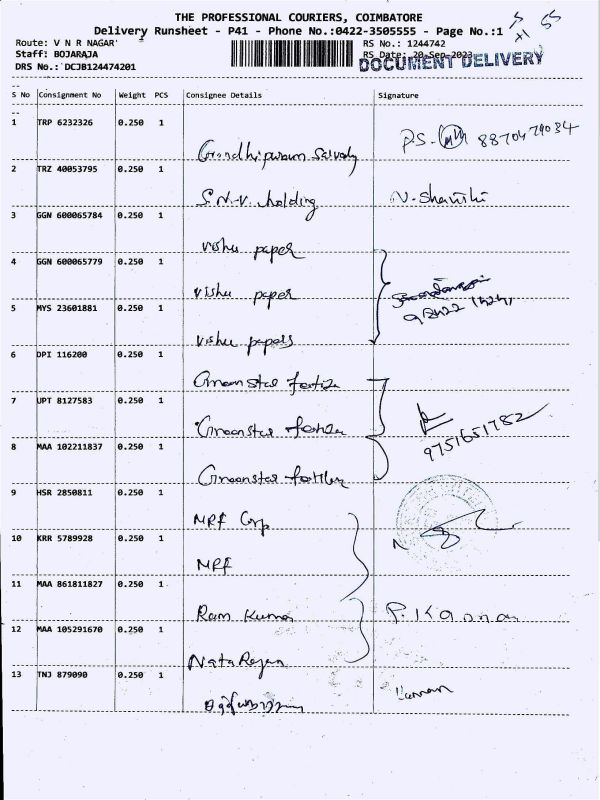 THE PROFESSIONAL COURIERS, COIMBATORE
Delivery Runsheet - P41 - Phone No.:0422-3505555 - Page No.:1
Route: V N R NAGAR RS No.: 1244742
Staff: BOJARAJA RS Date: 20-Sep-2023
DOCUMENT DELIVERY
DRS No.: DCJB124474201
S No Consignment No Weight PCS Consignee Details Signature
1 TRP 6232326 0.250 1
P.S. 8870479034
2 TRZ 40053795 0.250 1
S.N.V. holding N. Shanthi
3 GGN 600065784 0.250 1
vishu paper
4 GGN 600065779 0.250 1
vishu paper
5 MYS 23601881 0.250 1
vishu papers
6 DPI 116200 0.250 1
Greenstar
7 UPT 8127583 0.250 1
Greenstar
9751651782
8 MAA 102211837 0.250 1
Greenstar
9 HSR 2850811 0.250 1
MRF Corp
10 KRR 5789928 0.250 1
MRF
11 MAA 861811827 0.250 1
Ram Kumar P. Kannan
12 MAA 105291670 0.250 1
Nata Rajan
13 TNJ 879090 0.250 1